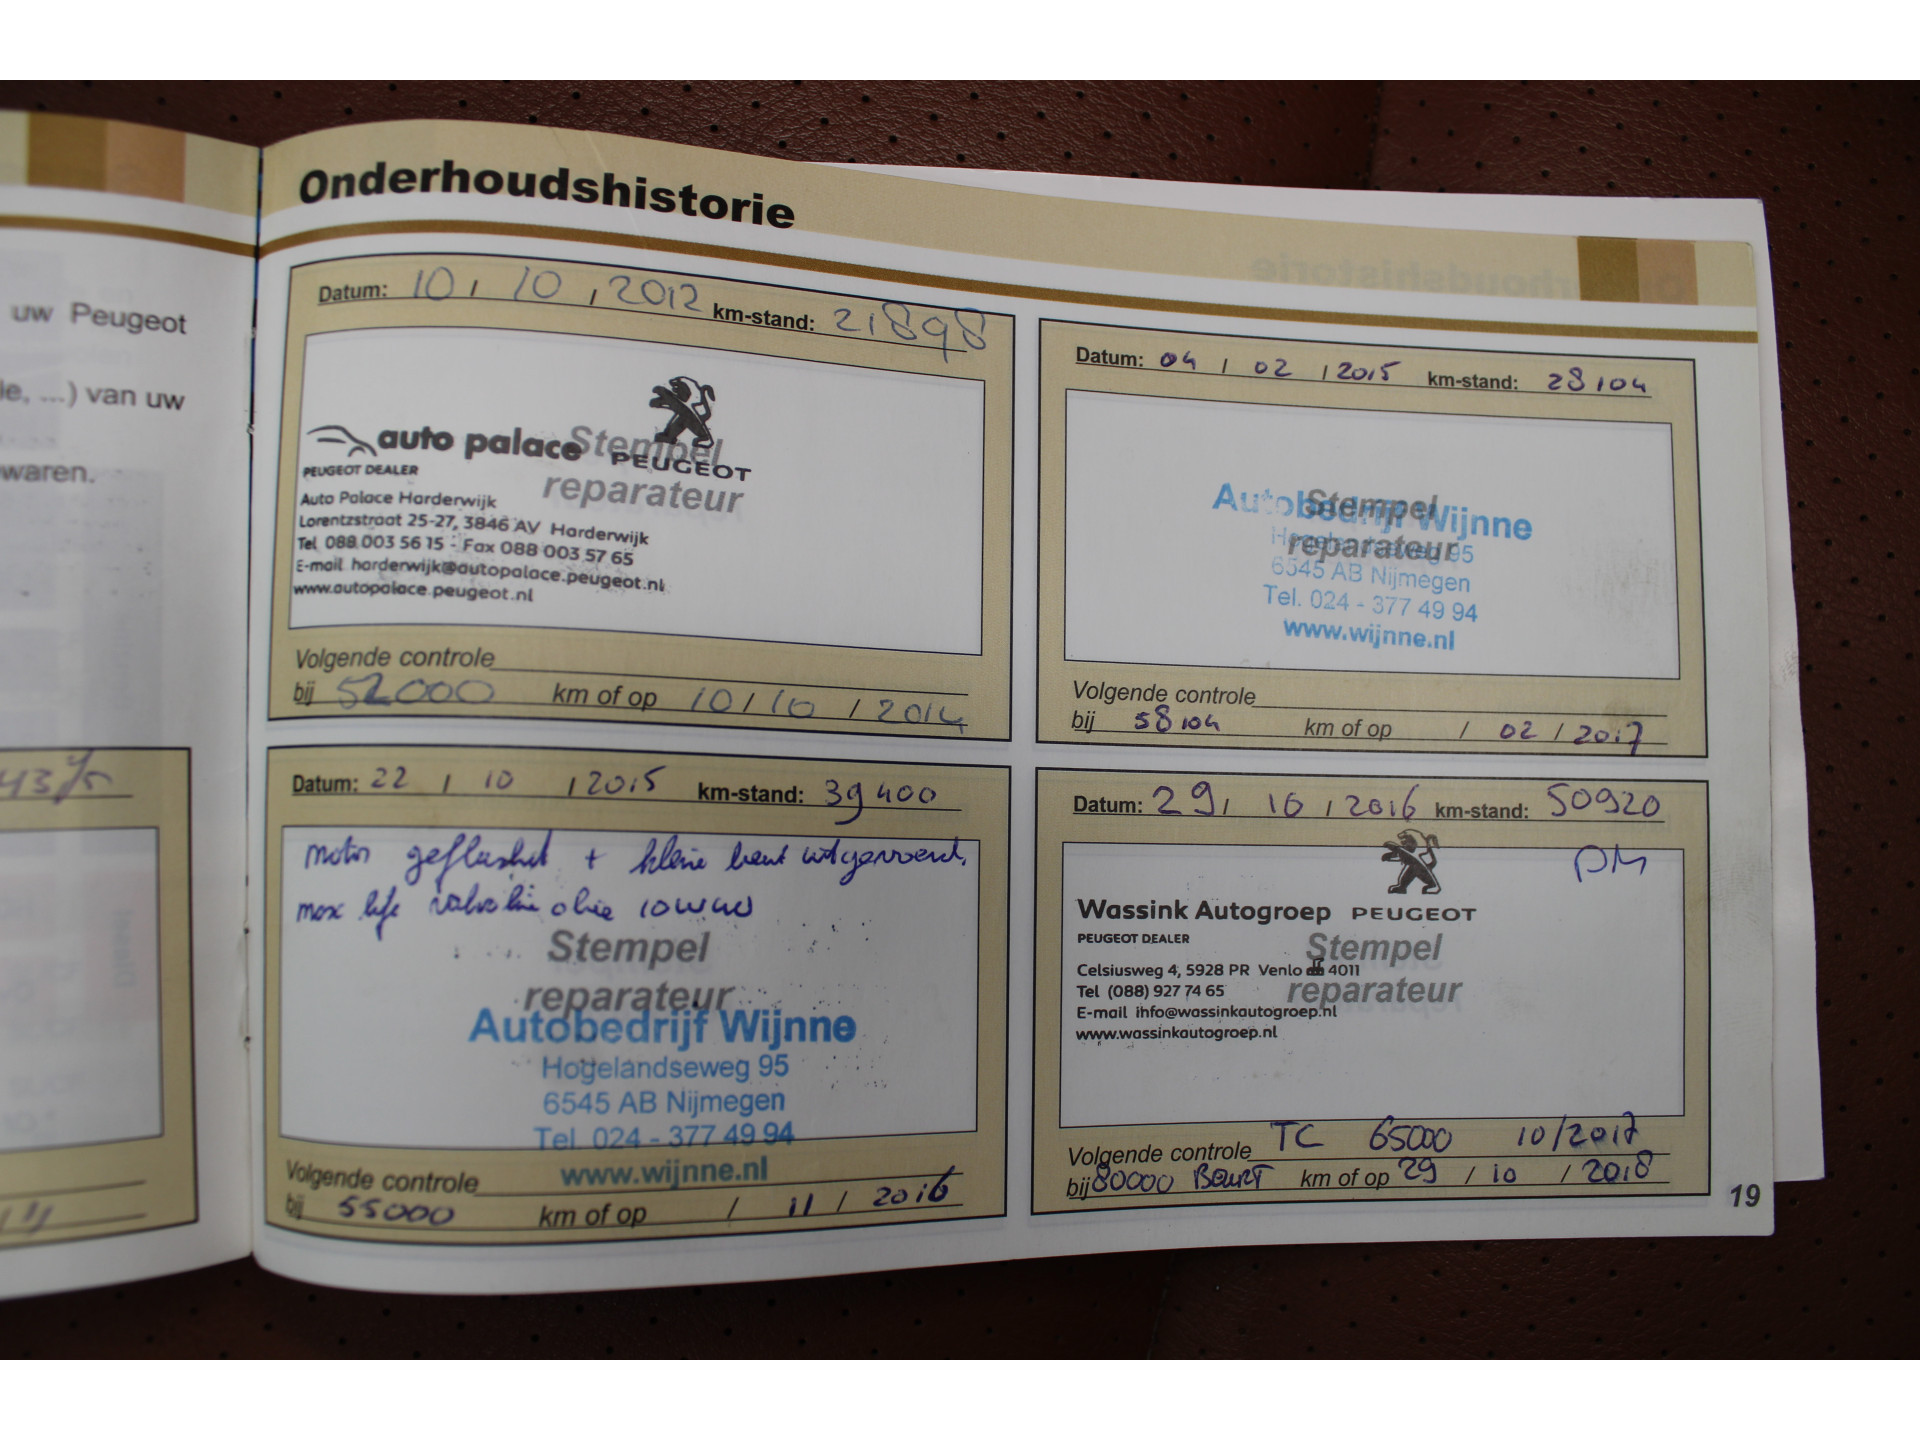 uw Peugeot
le, ...) van uw
waren.
Onderhoudshistorie
Datum: 10 / 10 / 2012 km-stand: 21898
auto palace
PEUGEOT
PEUGEOT DEALER
Stempel
reparateur
Auto Palace Harderwijk
Lorentzstraat 25-27, 3846 AV Harderwijk
Tel 088 003 56 15 - Fax 088 003 57 65
E-mail harderwijk@autopalace.peugeot.nl
www.autopalace.peugeot.nl
Volgende controle
bij 52000 km of op 10 / 10 / 2014
Datum: 04 / 02 / 2015 km-stand: 28104
Stempel
reparateur
Autobedrijf Wijnne
Hogelandseweg 95
6545 AB Nijmegen
Tel. 024 - 377 49 94
www.wijnne.nl
Volgende controle
bij 58104 km of op / 02 / 2017
Datum: 22 / 10 / 2015 km-stand: 39400
motor geflushed + kleine beurt uitgevoerd.
max life valvoline olie 10W40
Stempel
reparateur
Autobedrijf Wijnne
Hogelandseweg 95
6545 AB Nijmegen
Tel. 024 - 377 49 94
www.wijnne.nl
Volgende controle
bij 55000 km of op / 11 / 2016
Datum: 29 / 10 / 2016 km-stand: 50920
PM
Wassink Autogroep PEUGEOT
PEUGEOT DEALER
Stempel
reparateur
Celsiusweg 4, 5928 PR Venlo 4011
Tel (088) 927 74 65
E-mail info@wassinkautogroep.nl
www.wassinkautogroep.nl
Volgende controle TC 65000 10/2017
bij 80000 Beurt km of op 29 / 10 / 2018
19